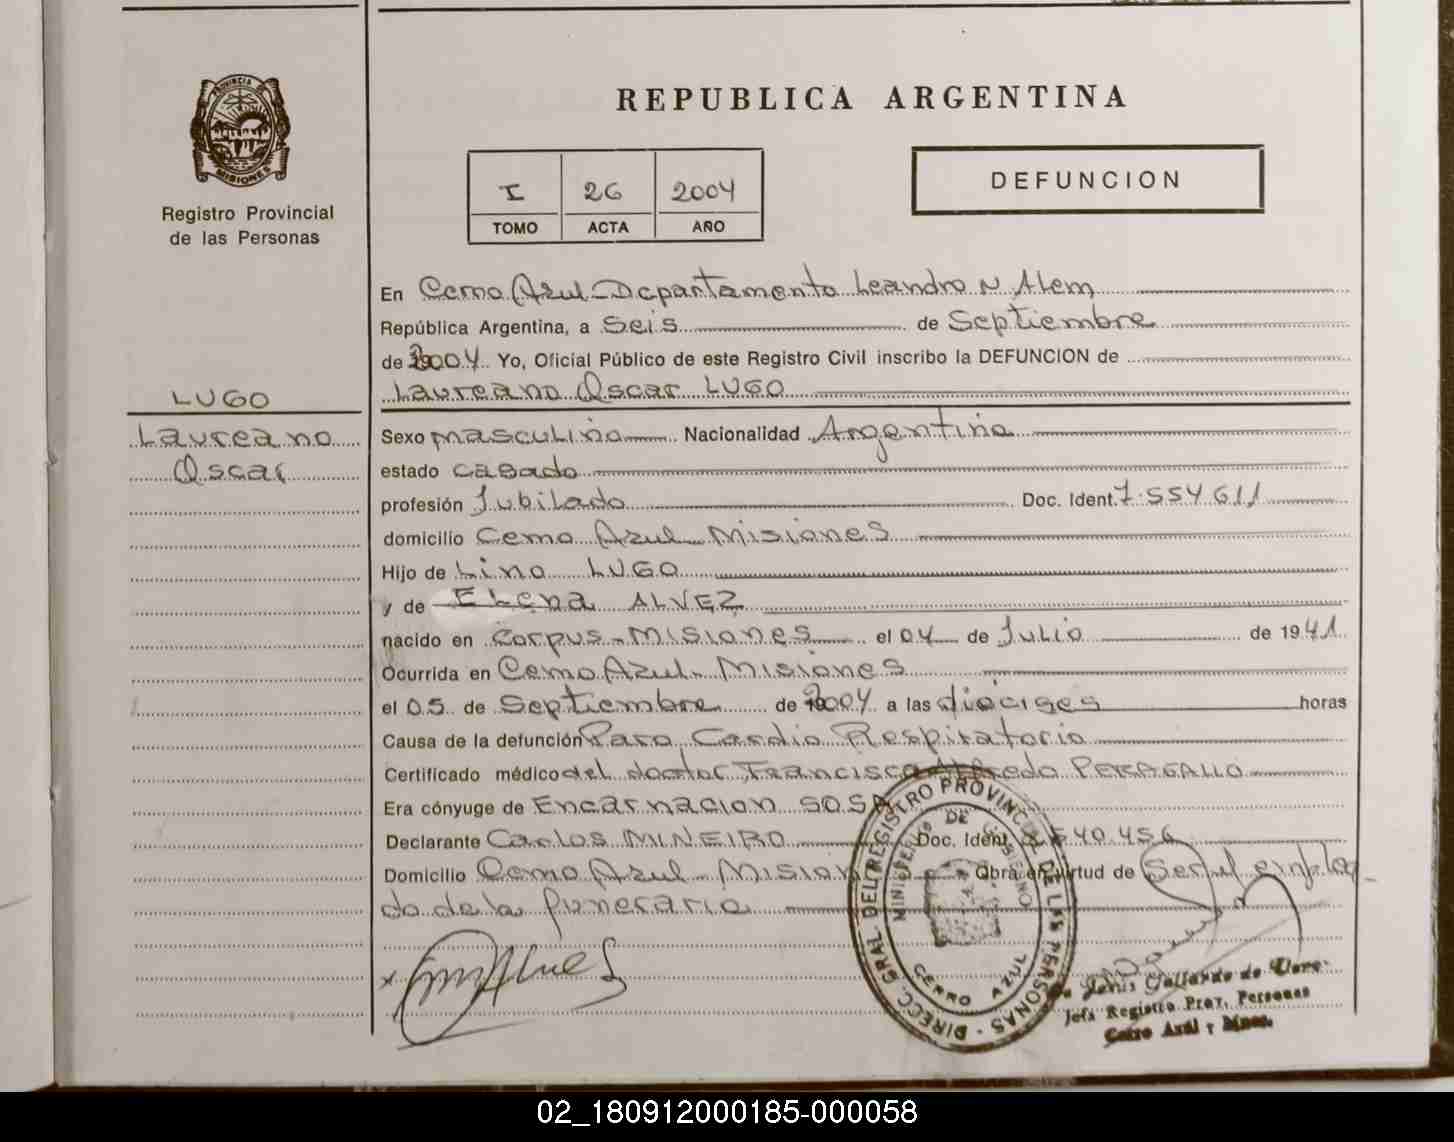 REPUBLICA ARGENTINA
PROVINCIA DE
MISIONES
Registro Provincial
de las Personas
I 26 2004
TOMO ACTA AÑO
DEFUNCION
LUGO
Laureano
Oscar
En Cerro Azul - Departamento Leandro N Alem
República Argentina, a Seis de Septiembre
de 2004 Yo, Oficial Público de este Registro Civil inscribo la DEFUNCION de
Laureano Oscar LUGO
Sexo masculino Nacionalidad Argentina
estado casado
profesión Jubilado Doc. Ident. 7.554.611
domicilio Cerro Azul - Misiones
Hijo de Lino LUGO
y de Elena ALVEZ
nacido en Corpus - Misiones el 04 de Julio de 1941
Ocurrida en Cerro Azul - Misiones
el 05 de Septiembre de 2004 a las diecises horas
Causa de la defunción Paro Cardio Respiratorio
Certificado médico del doctor Francisco Alfredo PERAGALLO
Era cónyuge de Encarnacion SOSA
Declarante Carlos MINEIRO Doc. Ident. 540.456
Domicilio Cerro Azul - Mision Obra en virtud de Ser el emplea
do de la funeraria
DIRECC. GRAL. DEL REGISTRO PROVINCIAL DE LAS PERSONAS
MINISTERIO DE GOBIERNO
CERRO AZUL
Gallardo de
Jefa Registro Prov. Personas
Cerro Azul - Mnes.
02_180912000185-000058